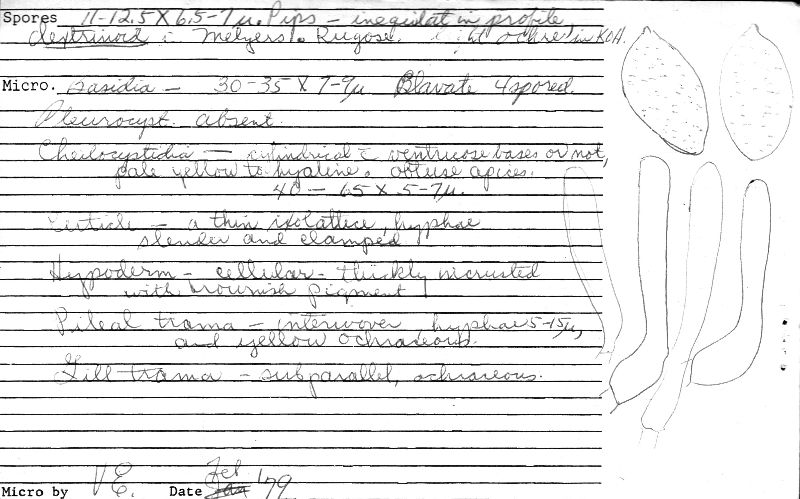 Spores 11-12.5 X 6.5-7 µ. Pips - inequilat in profile,
dextrinoid c̄ Melzers. Rugose. light ochre in KOH.
Micro. Basidia - 30-35 X 7-9µ Clavate 4 spored.
Pleurocyst. absent.
Cheilocystidia - cylindrical c̄ ventricose bases or not,
pale yellow to hyaline. obtuse apices.
40 - 65 X 5-7µ.
Cuticle - a thin ixolattice, hyphae
slender and clamped
Hypoderm - cellular - thickly incrusted
with brownish pigment
Pileal trama - interwoven hyphae 5-15µ,
and yellow ochraceous.
Gill trama - subparallel, ochraceous.
Micro by V E. Date Feb '79